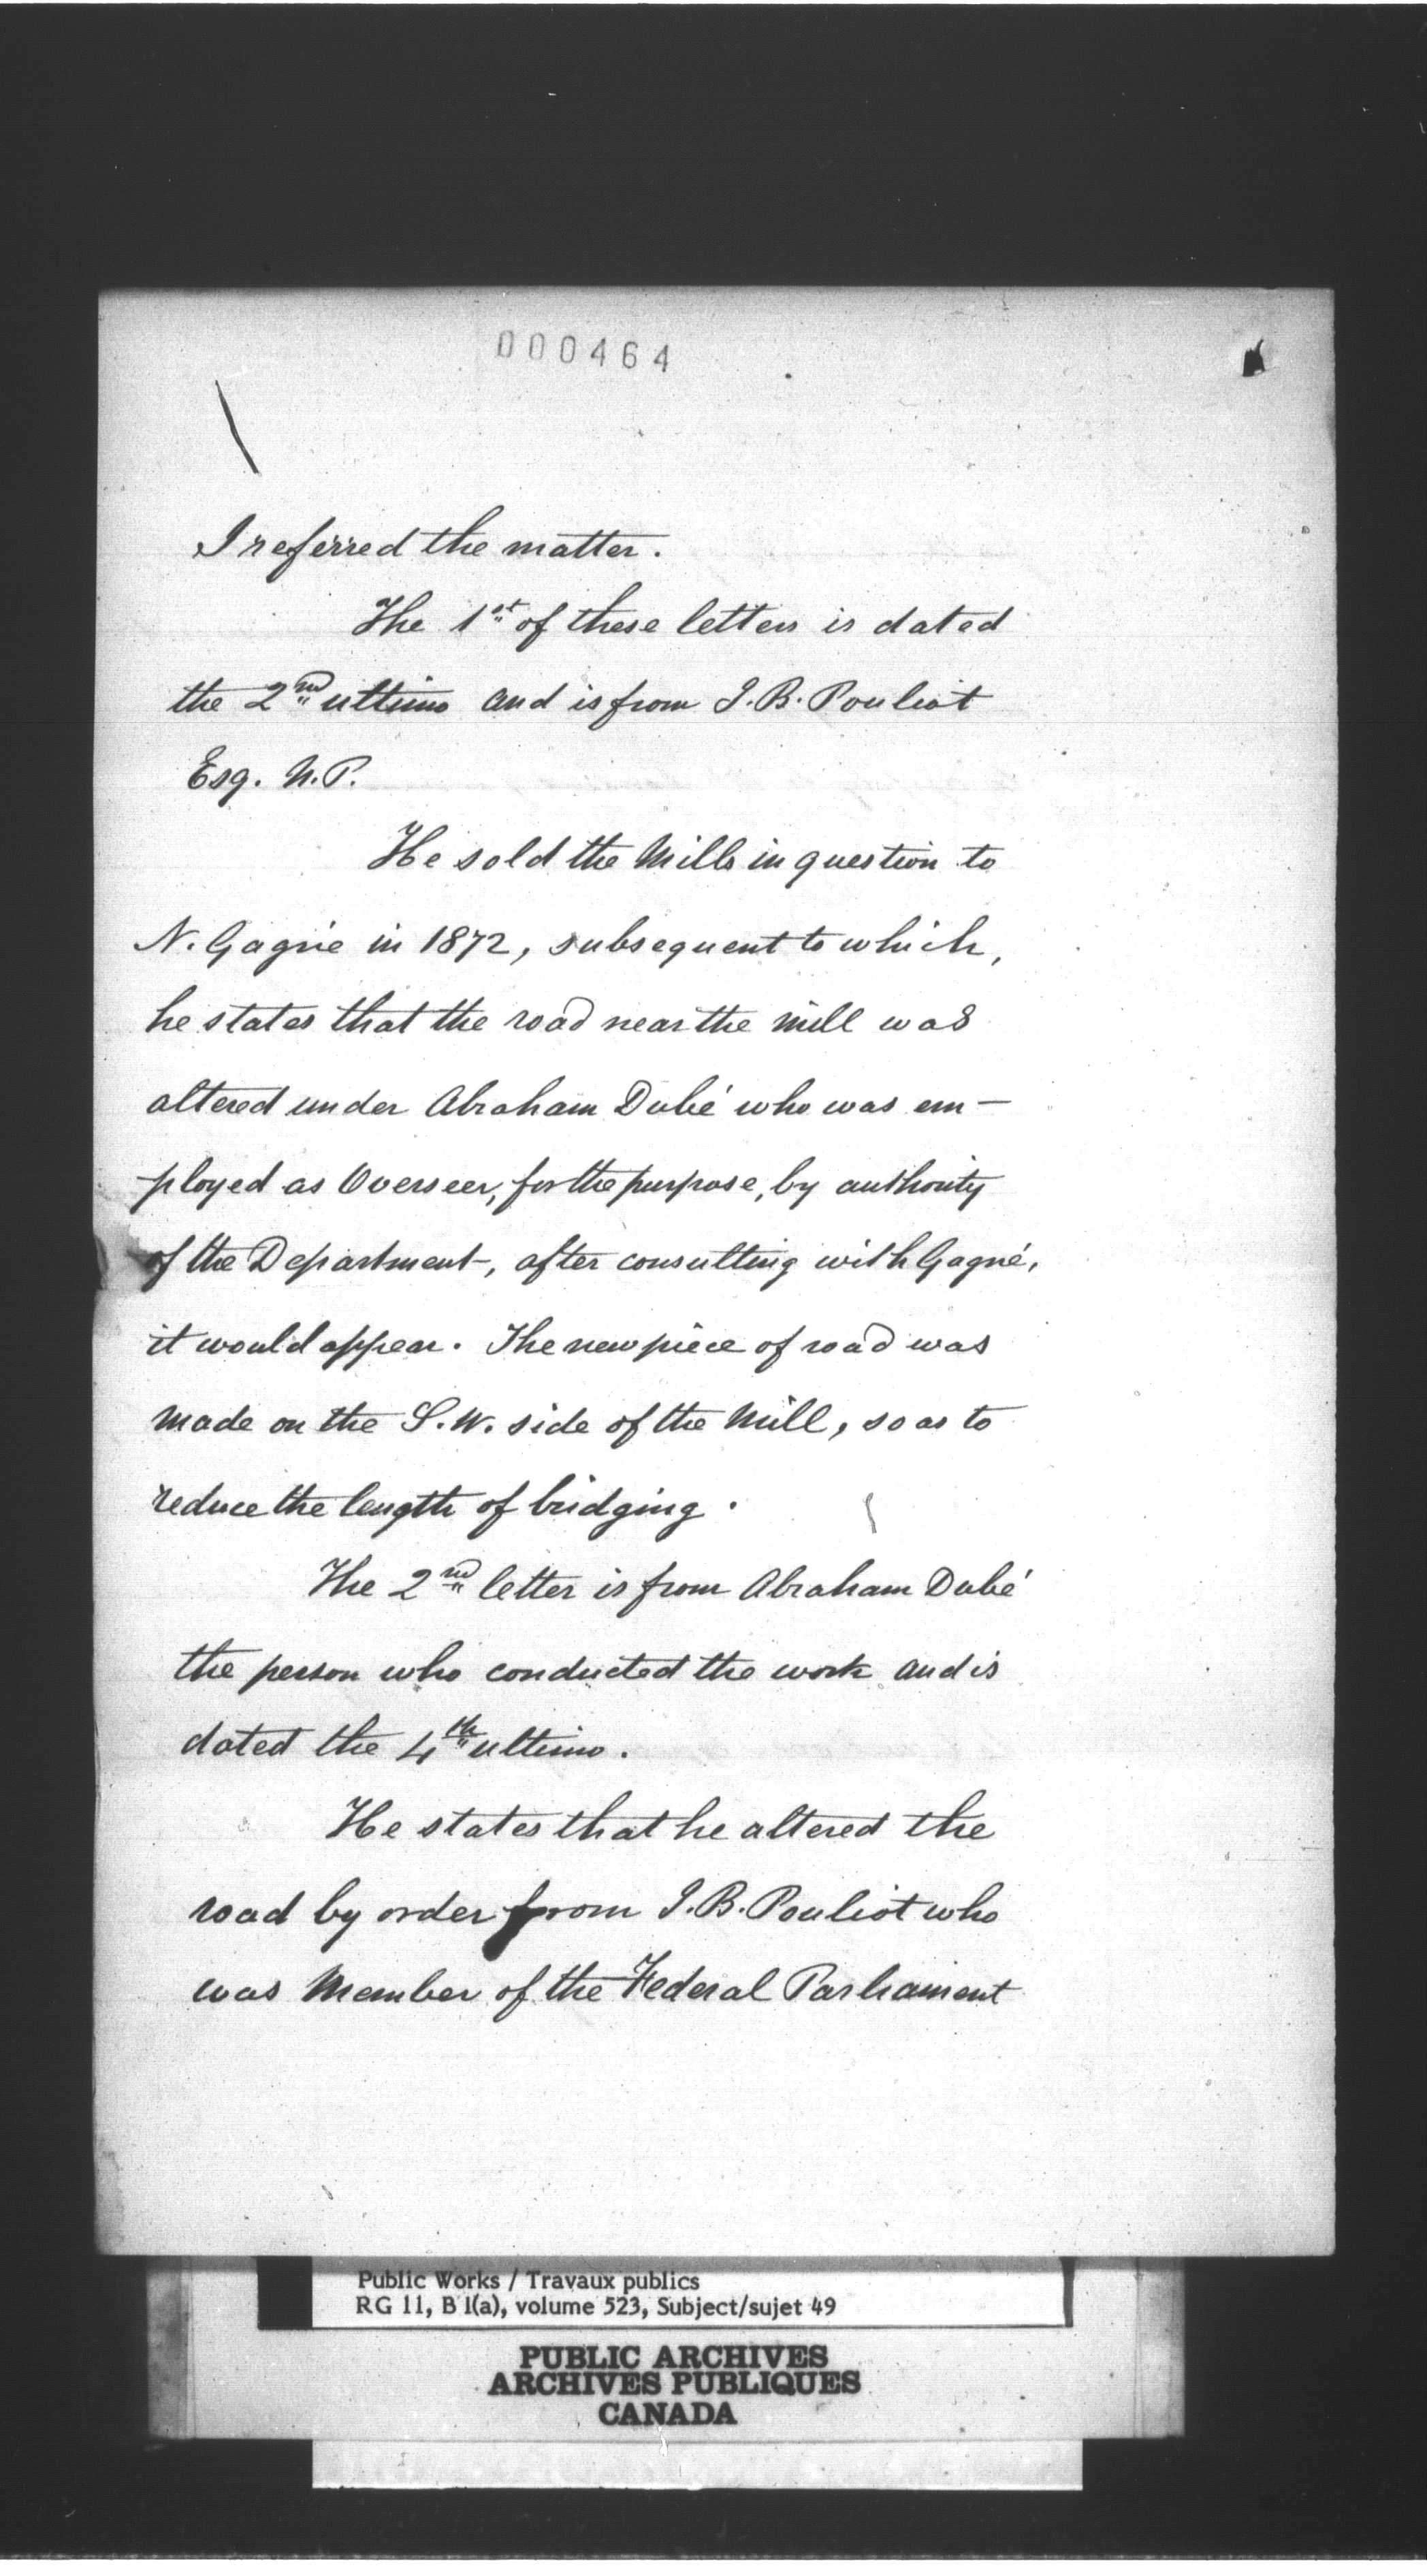 000464
I referred the matter.
The 1st of these letters is dated
the 2nd ultimo and is from J. B. Pouliot
Esq. N.P.
He sold the Mills in question to
N. Gagné in 1872, subsequent to which,
he states that the road near the mill was
altered under Abraham Dubé who was em-
ployed as Overseer, for the purpose, by authority
of the Department, after consulting with Gagné,
it would appear. The new piece of road was
made on the S.W. side of the Mill, so as to
reduce the length of bridging.
The 2nd letter is from Abraham Dubé
the person who conducted the work and is
dated the 4th ultimo.
He states that he altered the
road by order from J. B. Pouliot who
was Member of the Federal Parliament
Public Works / Travaux publics
RG 11, B 1(a), volume 523, Subject/sujet 49
PUBLIC ARCHIVES
ARCHIVES PUBLIQUES
CANADA